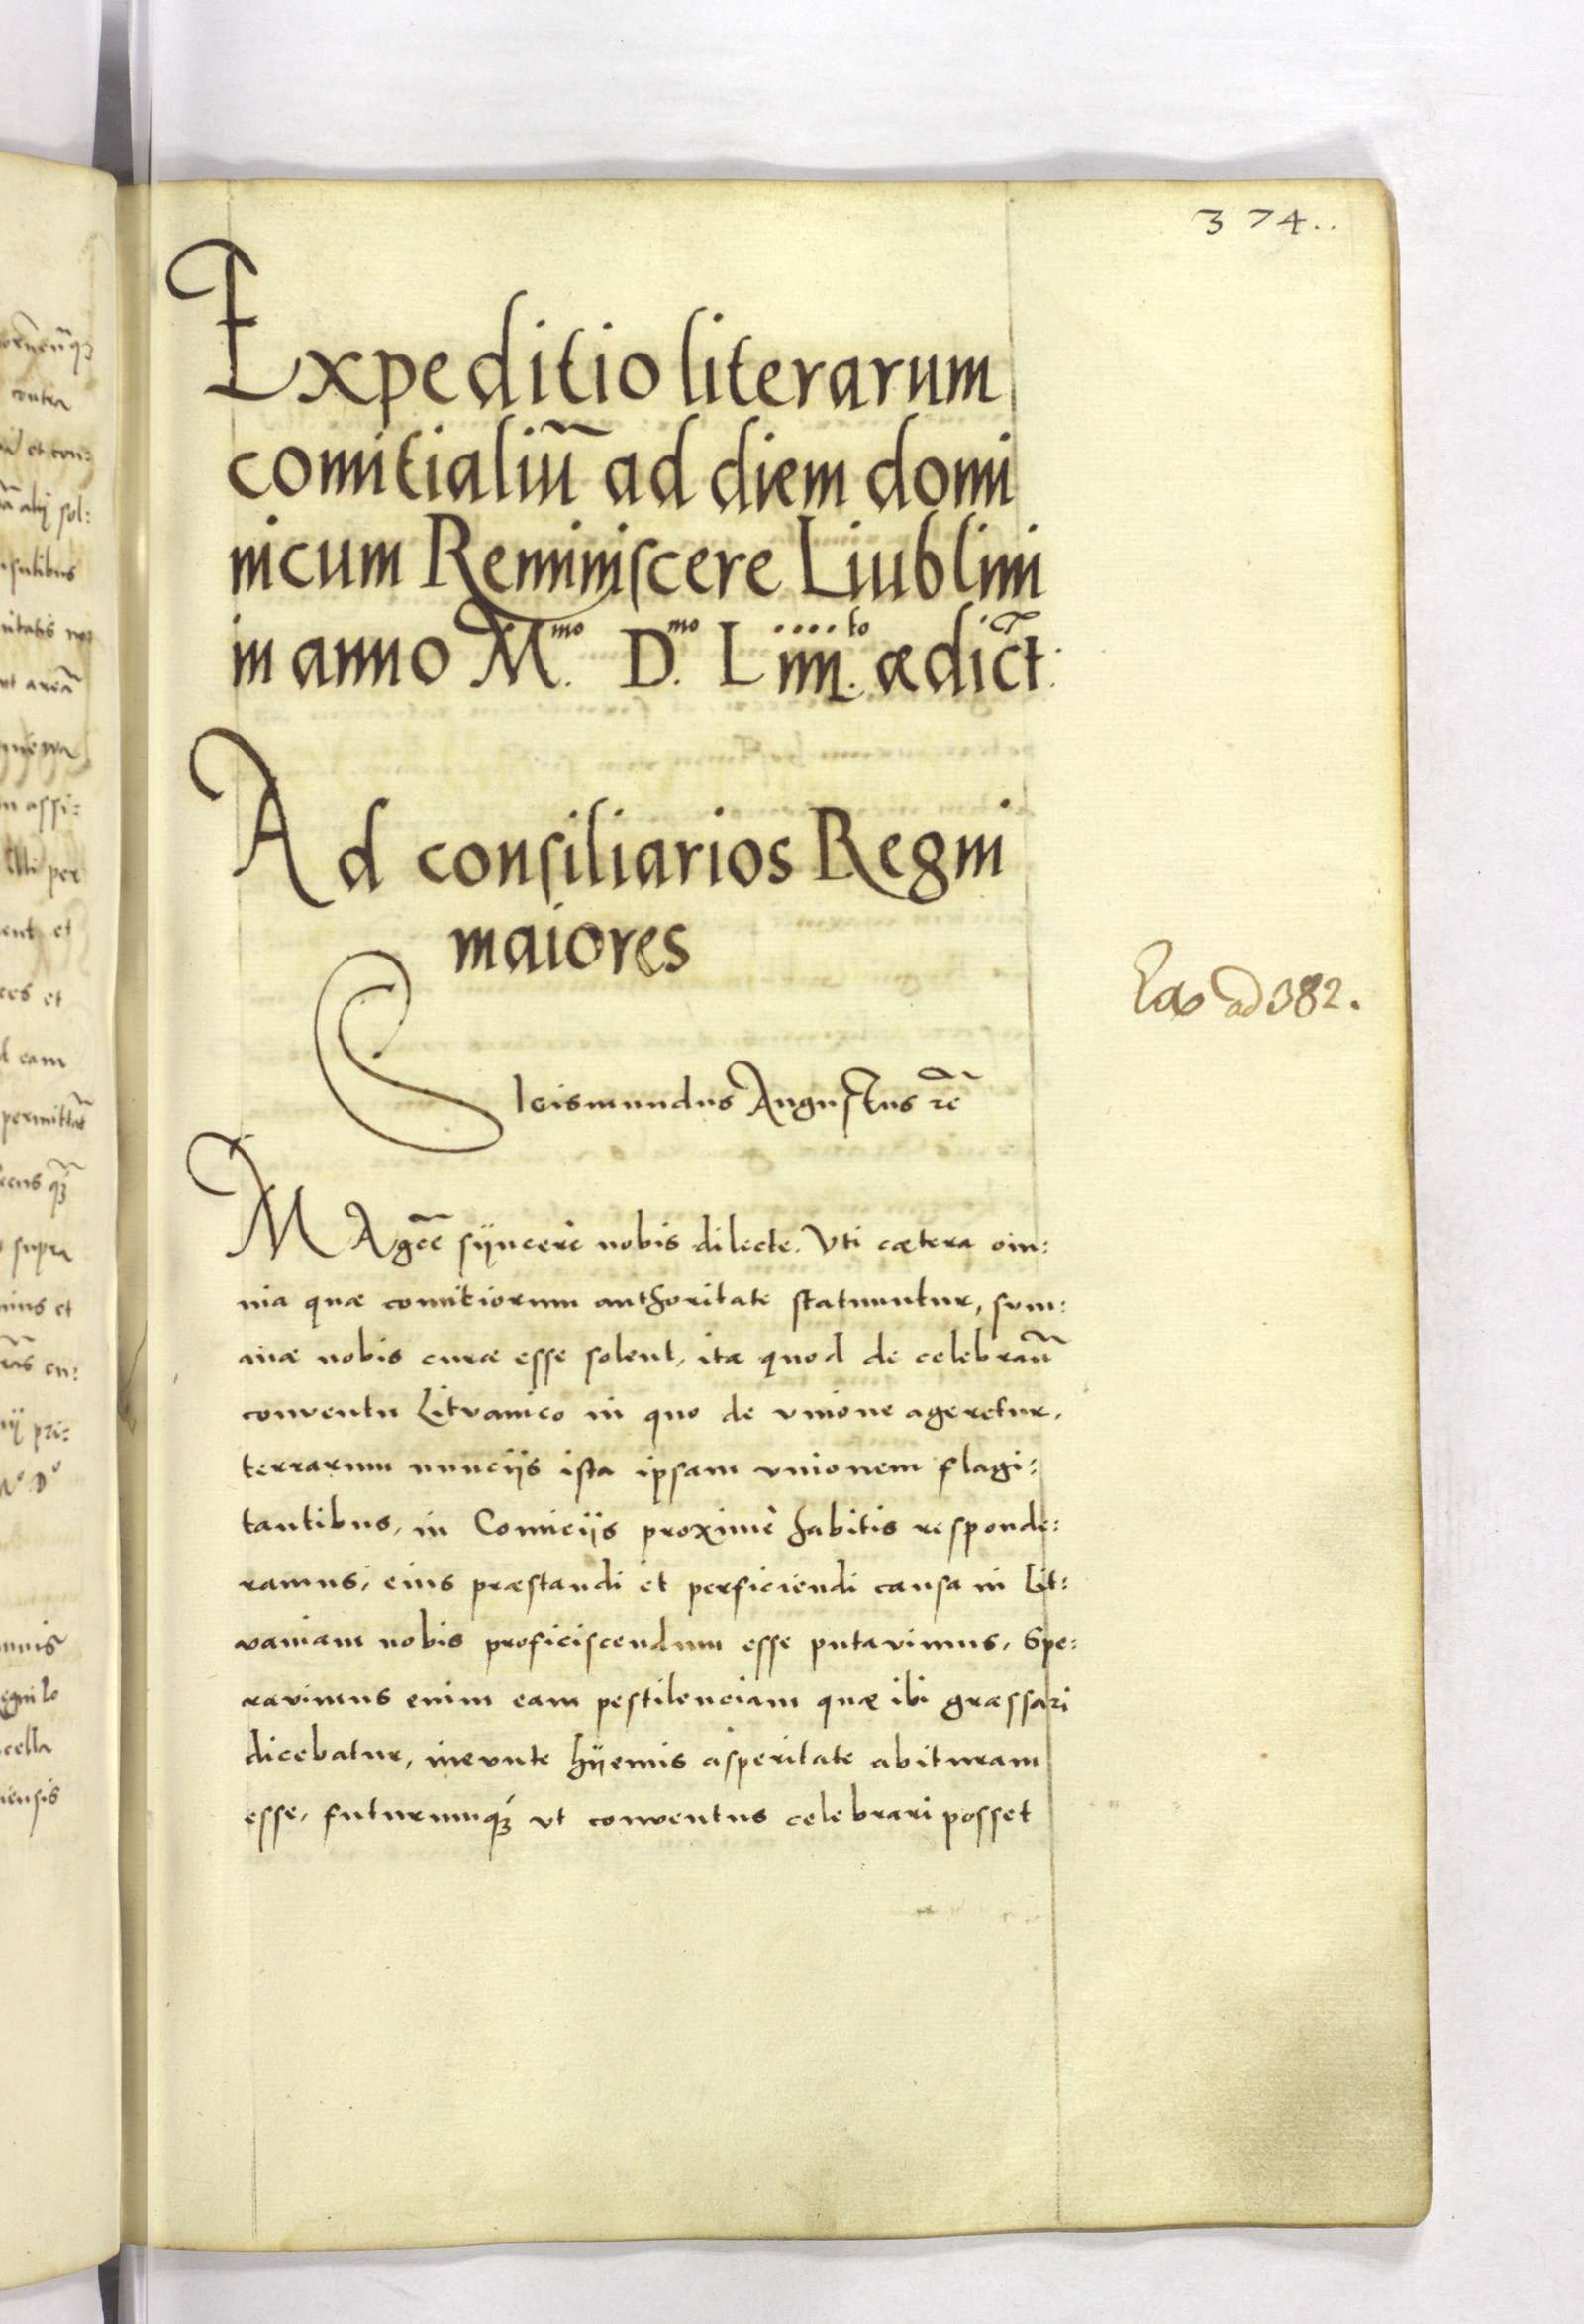 374..
Expeditio literarum
comitialiũ ad diem domi
nicum Reminiscere Liublini
in anno M.mo D.mo Liiii.to ædict:
Ad consiliarios Regni
maiores
ad 382.
Sigismundus Augustus
MAgcẽ sÿncerè nobis dilecte. Vti cætera om:
nia quæ comitiorum authoritate statuuntur, sum:
mæ nobis curæ esse solent, ita quod de celebrañ
conventu Litvanico in quo de vnione ageretur,
terrarum nunciis ista ipsam vnionem flagi:
tantibus, in Comiciis proximè habitis responde:
ramus, eius præstandi et perficiendi causa in Lit:
vaniam nobis proficiscendum esse putavimus, Spe:
ravimus enim eam pestilenciam quæ ibi græssari
dicebatur, inevnte hÿemis asperitate abituram
esse, futurumq́ꝫ vt conventus celebrari posset